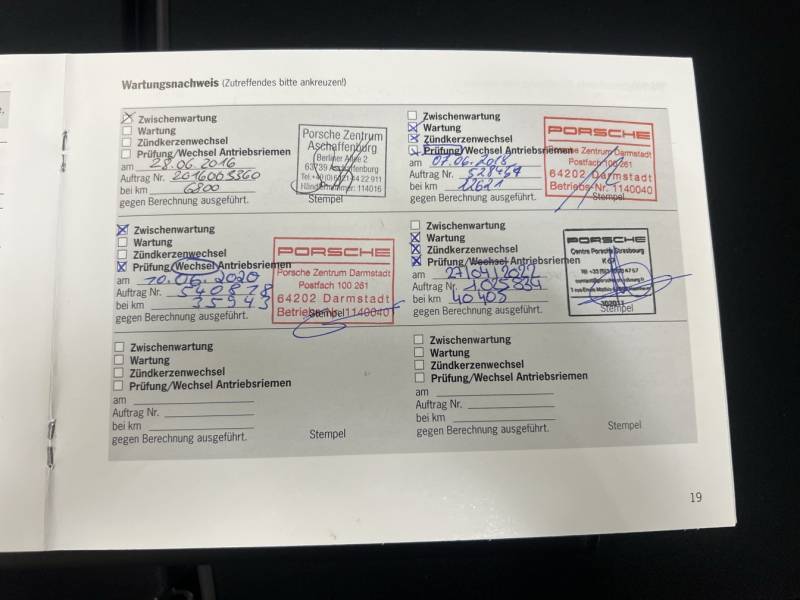 Wartungsnachweis (Zutreffendes bitte ankreuzen!)
Zwischenwartung
Wartung
Zündkerzenwechsel
Prüfung/Wechsel Antriebsriemen
am 28.06.2016
Auftrag Nr. 2016003360
bei km 6800
gegen Berechnung ausgeführt.
Porsche Zentrum
Aschaffenburg
Berliner Allee 2
63739 Aschaffenburg
Händlernummer: 114016
Stempel
Zwischenwartung
Wartung
Zündkerzenwechsel
Prüfung/Wechsel Antriebsriemen
am 07.06.2018
Auftrag Nr. 528467
bei km 12621
gegen Berechnung ausgeführt.
PORSCHE
Porsche Zentrum Darmstadt
Postfach 100 261
64202 Darmstadt
Betriebs-Nr. 1140040
Stempel
Zwischenwartung
Wartung
Zündkerzenwechsel
Prüfung/Wechsel Antriebsriemen
am 10.06.2020
Auftrag Nr. 540818
bei km 25943
gegen Berechnung ausgeführt.
PORSCHE
Porsche Zentrum Darmstadt
Postfach 100 261
64202 Darmstadt
Betriebs-Nr. 1140040
Stempel
Zwischenwartung
Wartung
Zündkerzenwechsel
Prüfung/Wechsel Antriebsriemen
am 27/04/2022
Auftrag Nr. 1025834
bei km 40405
gegen Berechnung ausgeführt.
PORSCHE
Centre Porsche Strasbourg
Stempel
Zwischenwartung
Wartung
Zündkerzenwechsel
Prüfung/Wechsel Antriebsriemen
am
Auftrag Nr.
bei km
gegen Berechnung ausgeführt.
Stempel
Zwischenwartung
Wartung
Zündkerzenwechsel
Prüfung/Wechsel Antriebsriemen
am
Auftrag Nr.
bei km
gegen Berechnung ausgeführt.
Stempel
19